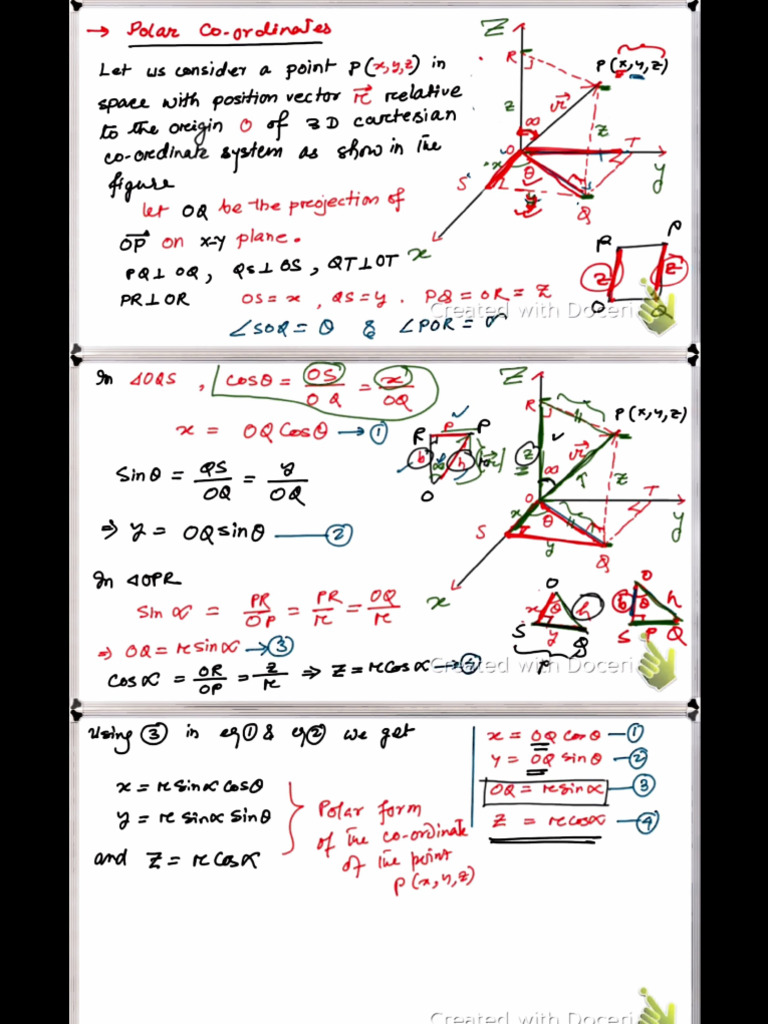 → Polar Co-ordinates
Let us consider a point P(x,y,z) in
space with position vector r⃗ relative
to the origin O of 3D cartesian
co-ordinate system as show in the
figure
let OQ be the projection of
O⃗P⃗ on x-y plane.
PQ⊥OQ, QS⊥OS, QT⊥OT
PR⊥OR OS=x, QS=y. PQ=OR=Z
∠SOQ=θ & ∠POR=α
Z
R
P(x,y,z)
r⃗
z
α
z
O
T
x
θ
y
S
y
Q
x
R P
Z Z
O Q
Created with Doceri
In △OQS, cosθ = OS/OQ = x/OQ
x = OQ Cosθ → ①
Sinθ = QS/OQ = y/OQ
⇒ y = OQ sinθ — ②
In △OPR
Sin α = PR/OP = PR/r = OQ/r
⇒ OQ = r sinα → ③
cosα = OR/OP = Z/r ⇒ Z = r cosα → ④
R P P
b α h |r⃗|
O
Z
R
P(x,y,z)
z
r⃗
α
z
O
T
x
θ
y
S
y
Q
x
O
x θ h
S y Q
P
O
b θ h
S P Q
Created with Doceri
Using ③ in eq① & eq② we get
x = r sinα cosθ
y = r sinα sinθ
and Z = r cosα
Polar form
of the co-ordinate
of the point
P(x,y,z)
x = OQ cosθ — ①
y = OQ sinθ — ②
OQ = r sinα — ③
Z = r cosα — ④
Created with Doceri